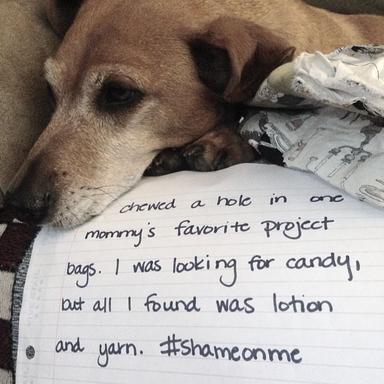 chewed a hole in one
mommy's favorite project
bags. I was looking for candy,
but all I found was lotion
and yarn. #shameonme